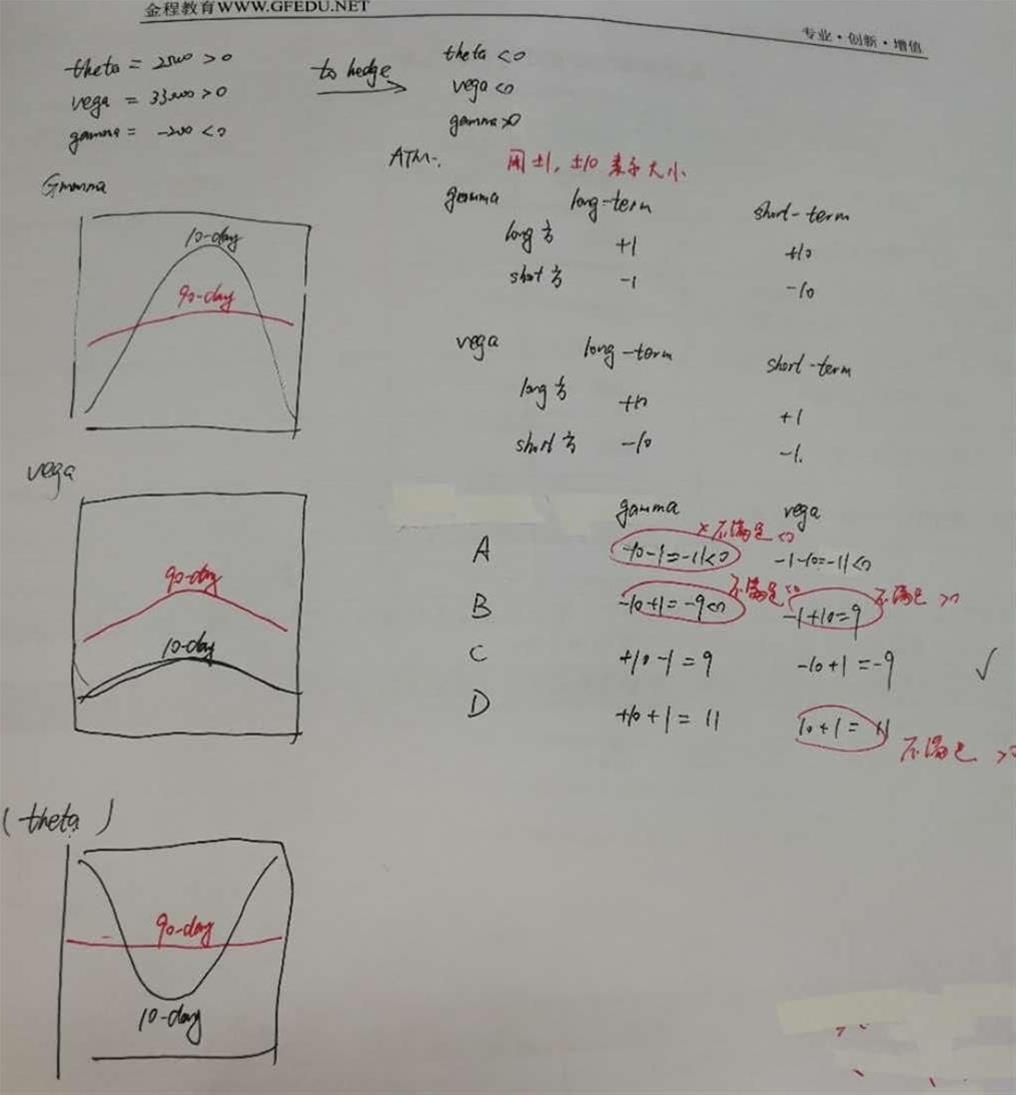 金程教育WWW.GFEDU.NET
专业·创新·增值
theta = 2500 >0
vega = 33000 >0
gamma = -200 <0
to hedge
theta <0
vega <0
gamma >0
ATM.
用±1, ±10 表示大小
gamma long-term short-term
long方 +1 +10
short方 -1 -10
vega long-term short-term
long方 +10 +1
short方 -10 -1.
Gamma
10-day
90-day
vega
90-day
10-day
(theta)
90-day
10-day
gamma vega
A -10-1=-11<0 ×不满足 -1-10=-11<0
B -10+1=-9<0 不满足 -1+10=9 不满足
C +10-1=9 -10+1=-9 √
D +10+1=11 10+1=11 不满足